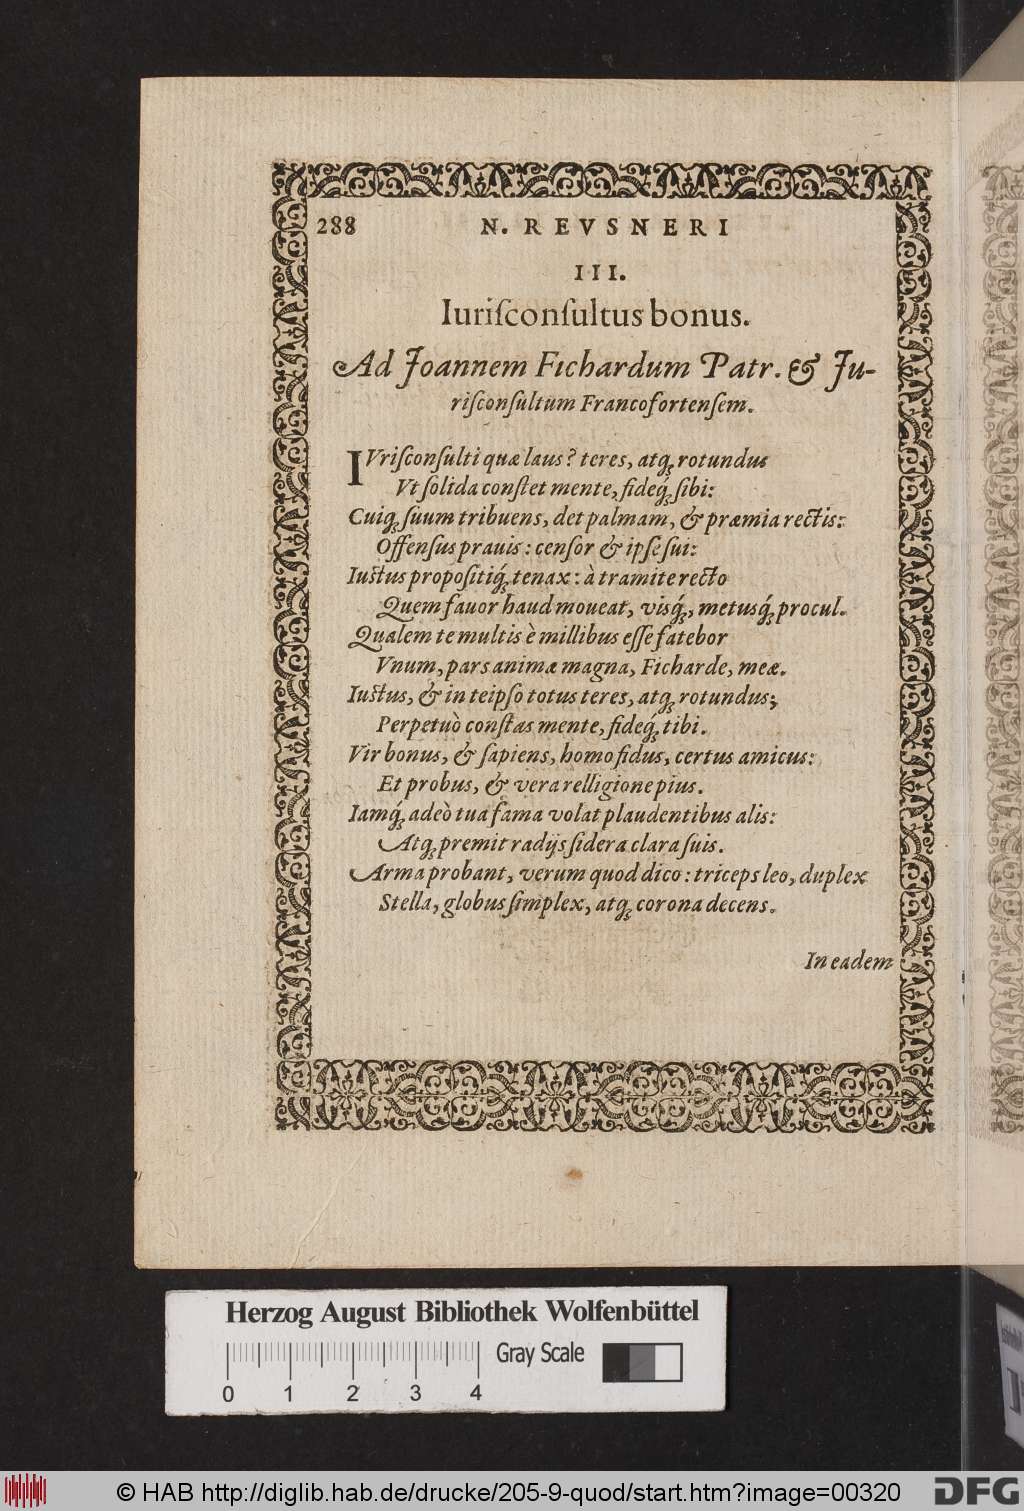 288 N. REVSNERI
III.
Iuriſconſultus bonus.
Ad Joannem Fichardum Patr. & Ju-
riſconſultum Francofortenſem.
IVriſconſulti quæ laus? teres, atq́; rotundus
Vt ſolida conſtet mente, fideq́; ſibi:
Cuiq; ſuum tribuens, det palmam, & præmia rectis:
Offenſus prauis: cenſor & ipſe ſui:
Iuſtus propoſitiq́; tenax: à tramite recto
Quem fauor haud moueat, visq́;, metusq́; procul.
Qualem te multis è millibus eſſe fatebor
Vnum, pars animæ magna, Ficharde, meæ.
Iuſtus, & in teipſo totus teres, atq; rotundus;
Perpetuò conſtas mente, fideq́; tibi.
Vir bonus, & ſapiens, homo fidus, certus amicus:
Et probus, & vera relligione pius.
Iamq́; adeò tua fama volat plaudentibus alis:
Atq; premit radijs ſidera clara ſuis.
Arma probant, verum quod dico: triceps leo, duplex
Stella, globus ſimplex, atq; corona decens.
In eadem
Herzog August Bibliothek Wolfenbüttel
Gray Scale
0 1 2 3 4
© HAB http://diglib.hab.de/drucke/205-9-quod/start.htm?image=00320
DFG